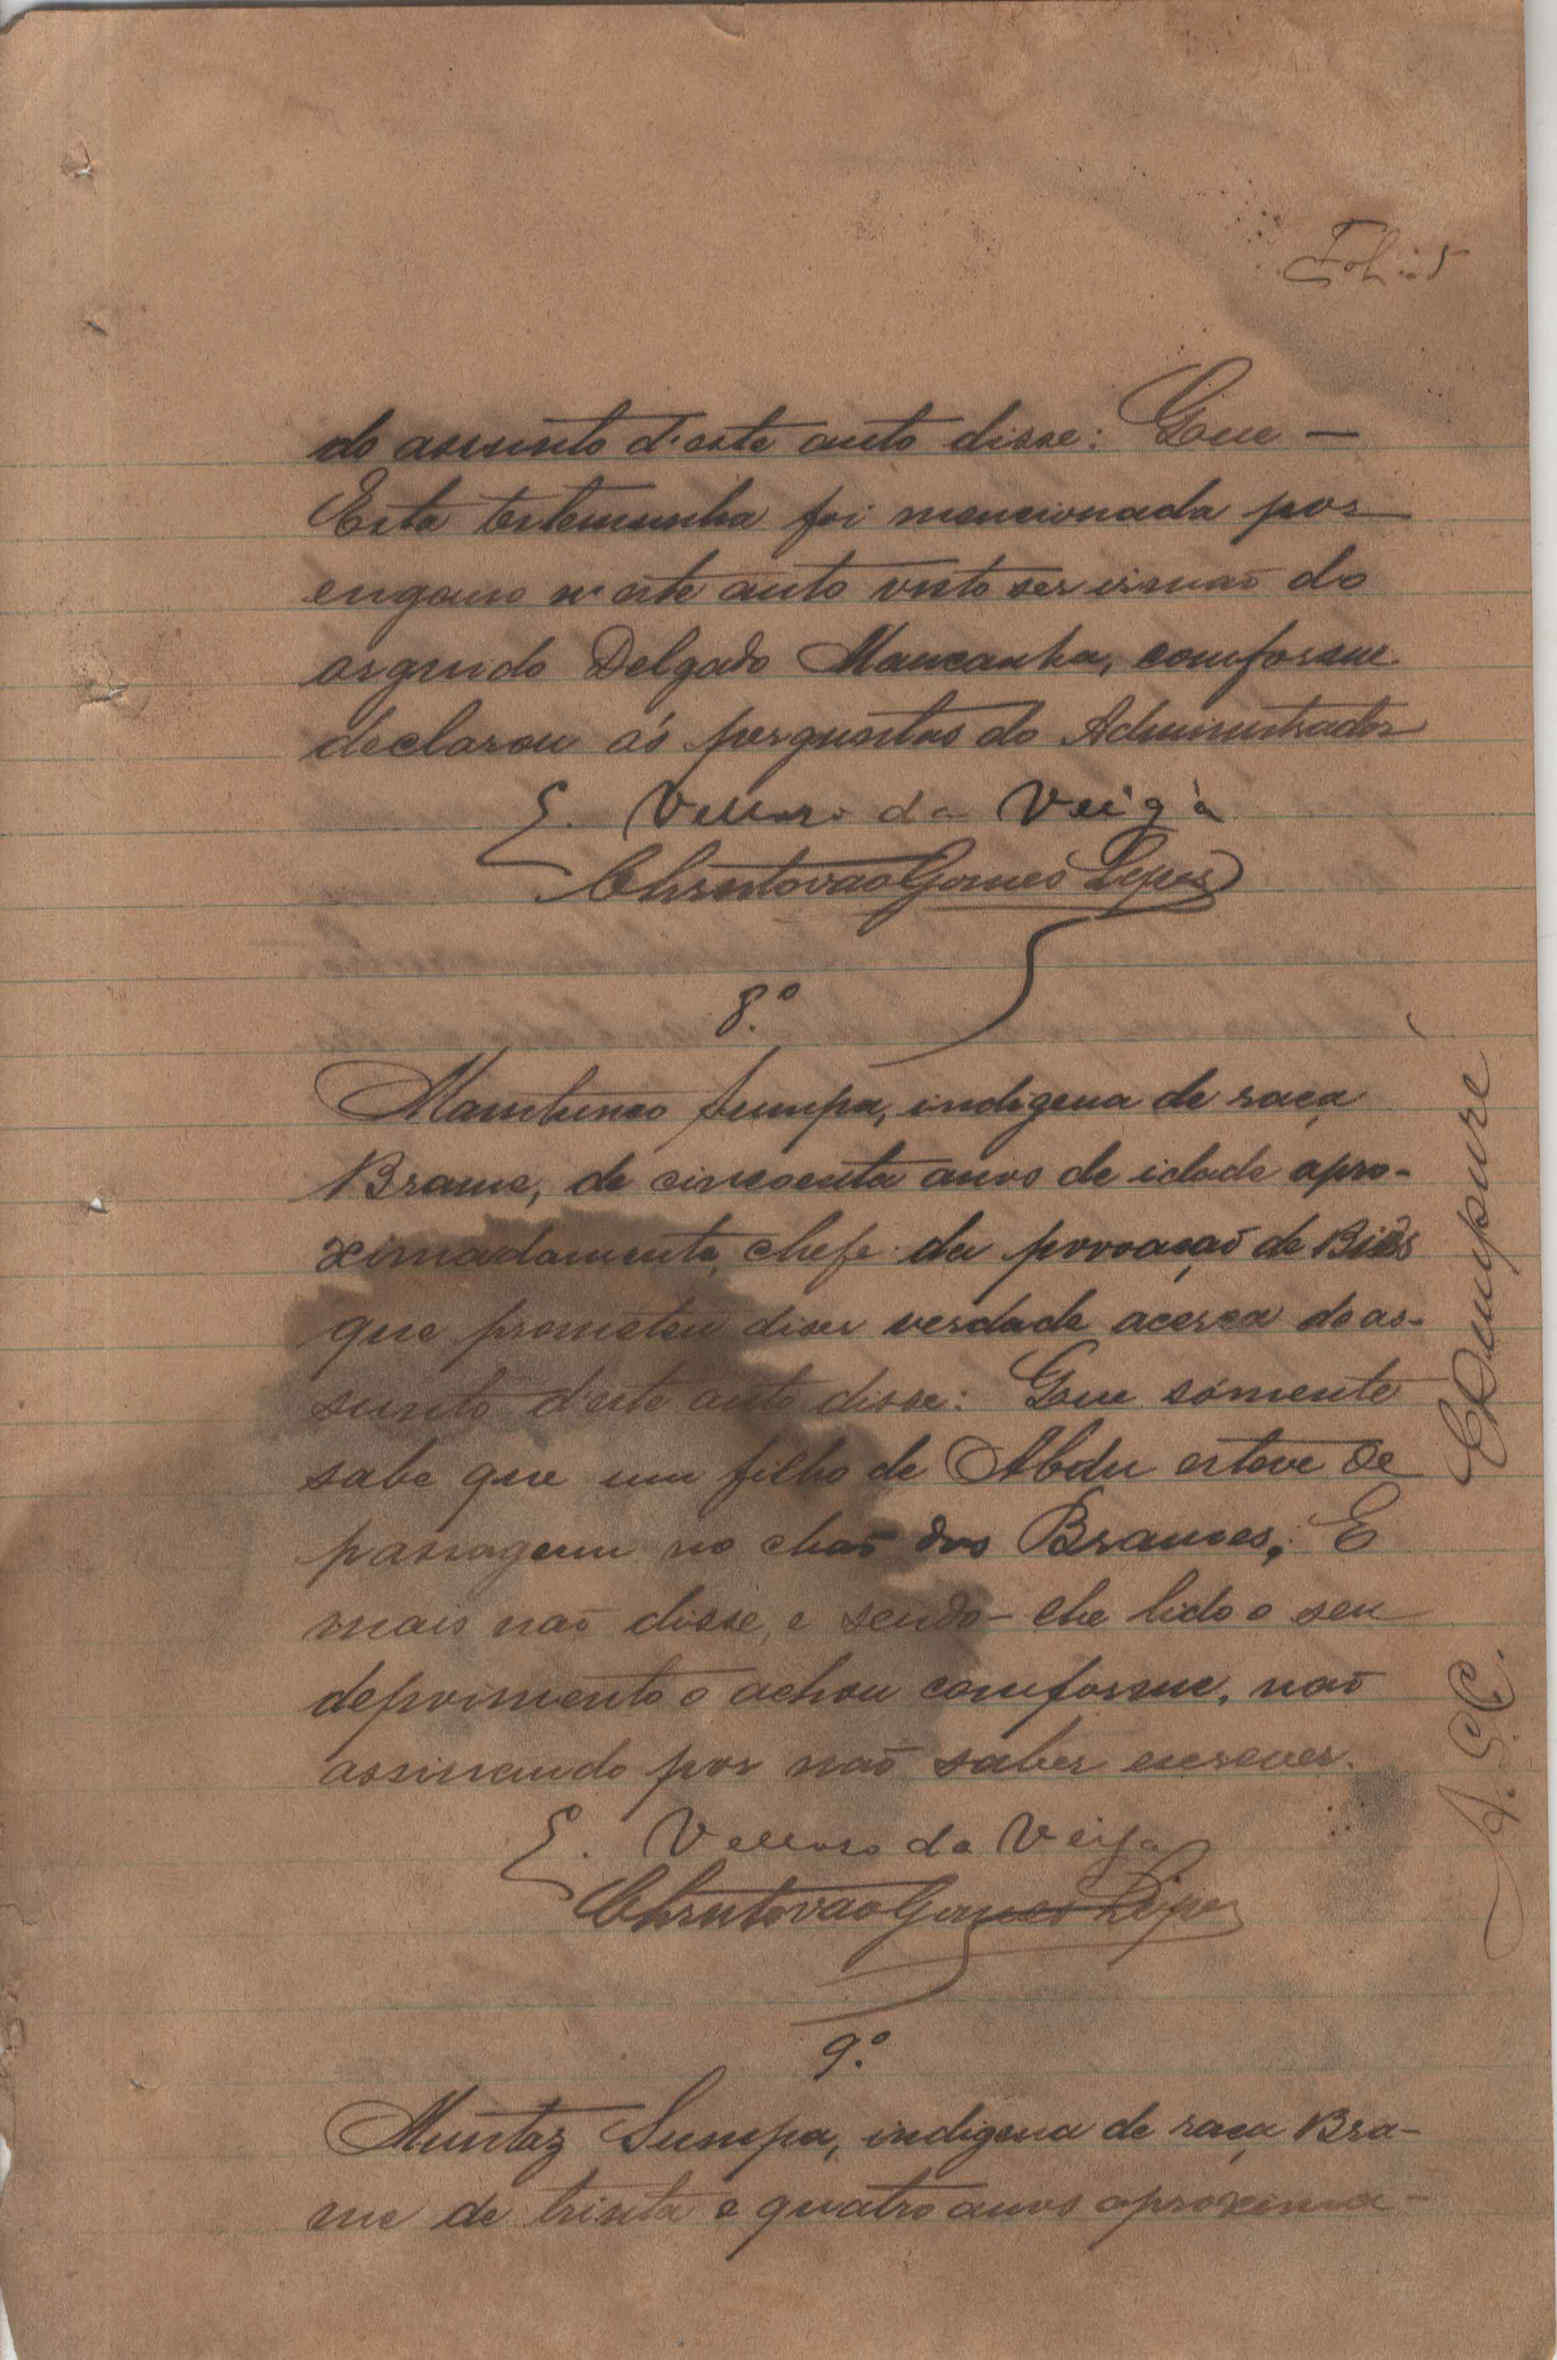 Fol. 5
do assunto d'este auto disse: Que —
Esta testemunha foi mencionada por
engano n'este auto visto ser irmaõ do
arguido Delgado Mancanha, comforme
declarou ás perguntas do Administrador
E. Velloso da Veiga
Christovaõ Gomes Lopes
8.º
Sumpa, indigena de raça
Brame, de cincoenta anos de idade apro-
ximadamente, chefe da povoaçaõ de
que prometeu diser verdade acerca do as-
sunto d'este auto disse: Que sómente
sabe que um filho de Abdu esteve de
passagem no chaõ dos Brames. E
mais naõ disse, e sendo-lhe lido o seu
depoimento o achou comforme, naõ
assinando por naõ saber escrever.
E. Velloso da Veiga
Christovaõ Gomes Lopes
9.º
Muntaz Sumpa, indigena de raça Bra-
me de trinta e quatro anos aproxima-